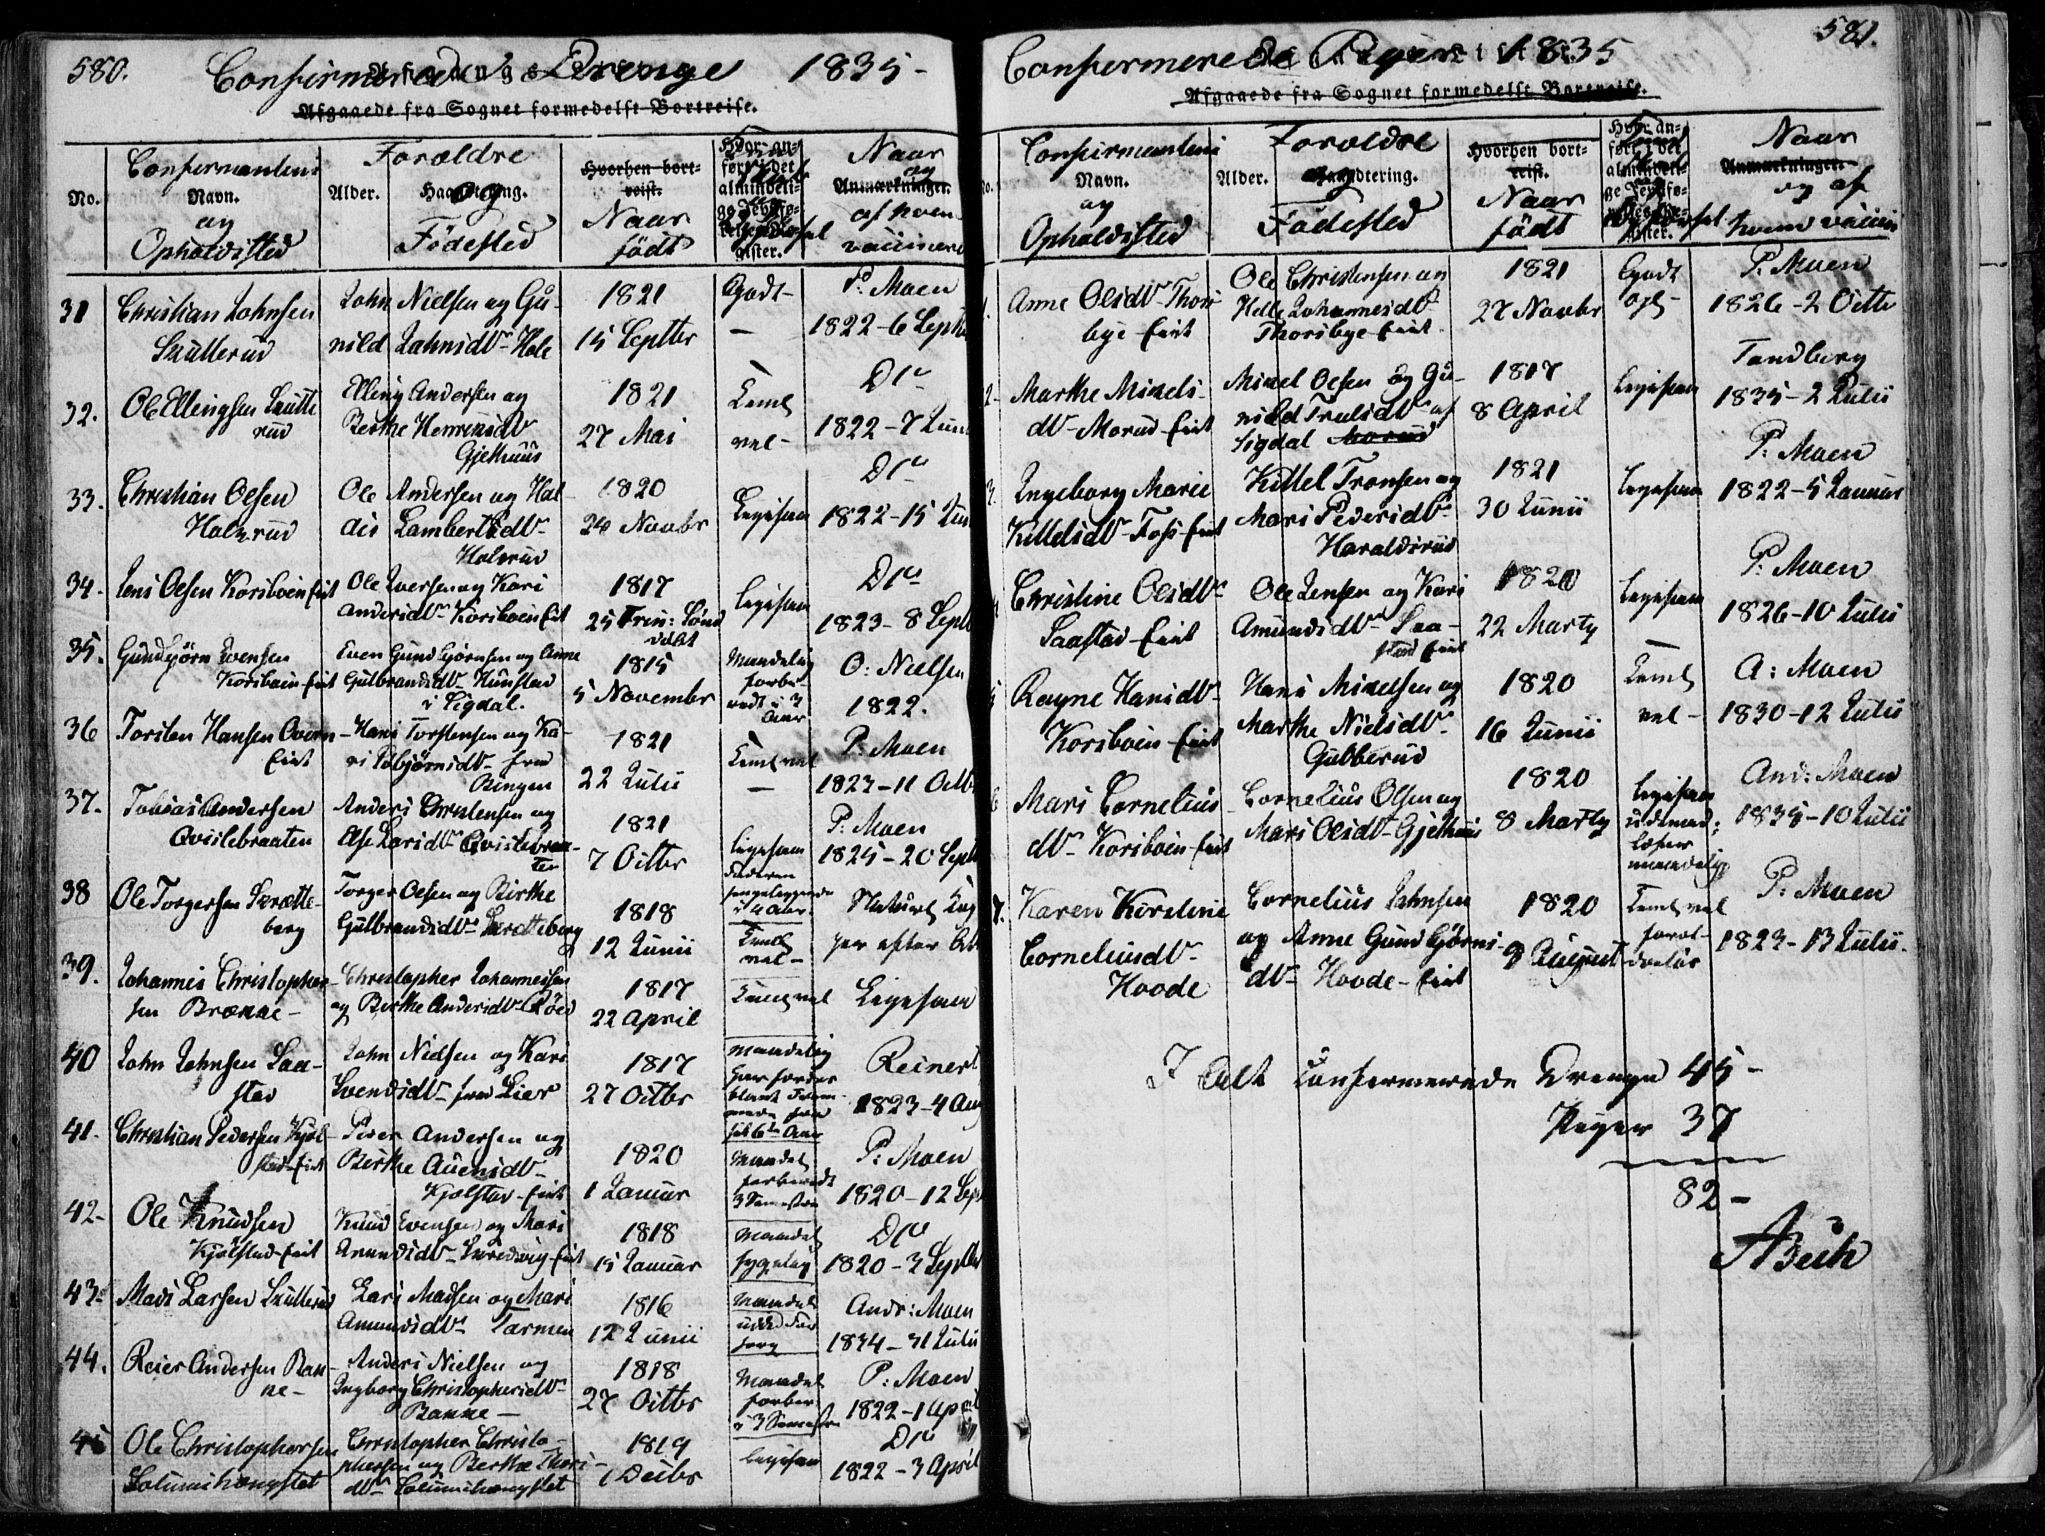 580.
Confirmerede Drenge 1835-
Afgaaede fra Sognet formedelst Bortreise.
No.
Confirmantens
Navn.
og
Opholdssted
Alder.
Forældre
og
Fødested
Hvorhen bort-
reist.
Naar
født
Naar
og
Anmærkninger.
af hvem
vaccineret
31
Christian Johnsen
Skutterud
John Nielsen og Gu-
nild Jahnsdtr Hole
1821
15 Septbr
Godt-
P: Moen
1822-6 Septb
32.
Ole Ellingsen Skutte
rud
Elling Andersen og
Berthe Henrensdtr
Gjethuus
1821
27 Mai
Teml
vel-
Dto
1822-7 Jun
33.
Christian Olsen
Halvrud
Ole Andersen og Hal-
dis Lambertsdtr
Halvrud
1820
24 Novbr
Ligesaa
Dto
1822-15 Jun
34.
Jens Olsen Korsboen Eiet
Ole Iversen og Kari
Andersdtr Korsboen Eiet
1817
25 Trin: Sønd
Ligesaa
Dto
1823-8 Septb
35.
Gundbjørn Evensen
Korsboen Eiet
Even Gundbjørnsen og Anne
Gulbrandsdtr Hunstad
i Sigdal.
1815
5 Novembr
Maadelig
forbe
redt i 3
Aar
O: Nielsen
1822.
36
Torsten Hansen Overn
Eiet
Hans Torstensen og Ka-
ri Tobjørnsdtr fra
Ringen
1821
22 Julii
Teml vel
P: Moen
1823-11 Octb
37.
Tobias Andersen
Qvislebraaten
Anders Christensen og
Else Larsdtr Qvislebraa-
ten
1821
7 Octbr
Ligesaa
P: Moen
1825-20 Septb
38
Ole Torgersen Skrætte-
berg
Torger Olsen og Birthe
Gulbrandsdtr Skrætteberg
1818
12 Junii
Faderen
sengeliggende
i 4 Aar.
Teml
vel-
Naturl Kop
per efter
39.
Johannes Christopher-
sen Brænne-
Christopher Johannessen
og Birthe Andersdtr Røed
1817
22 April
Teml vel
Ligesaa
40
John Johnsen Saa-
stad
John Nielsen og Kari
Svendsdtr fra Lier
1817
27 Octbr
Maadelig
Reinert
1823-4 Aug
41.
Christian Pedersen Kjøl-
stad Eiet
Peder Andersen og
Birthe Auensdtr
Kjølstad-Eiet
1820
1 Januar
Maadel
forberedt
3 Semestre
P: Moen
1820-12 Sept
42-
Ole Knudsen
Kjølstad-Eiet
Knud Evensen og Mari
Amundsdtr Skredsvig-Eiet
1818
15 Januar
Maadel
sygelig
Dto
1820-3 Septbr
43.
Mads Larsen Skutterud
Lars Madsen og Mari
Amundsdtr Tarmen
1816
12 Junii
Maadel
Andr: Moen
1834-31 Julii
44.
Reier Andersen Ban-
ne-
Anders Nielsen og
Ingborg Christophersdtr
Banne-
1818
27 Octbr
Maadel
forber
i 3 Semestre
P: Moen
1822-1 April
45
Ole Christophersen
Columshaugstet
Christopher Christo-
phersen og Berthe Thors-
dtr Columshaugstet
1819
1 Decbr
Ligesaa
Dto
1822-3 April
581.
Confirmerede Piger 1835
Afgaaede fra Sognet formedelst Bortreise.
Confirmantens
Navn.
og
Opholdssted
Alder.
Forældre
og
Haandtering.
Fødested
Hvorhen bort-
reist.
Naar
født
Naar
Anmærkninger.
og af
hvem vaccin
Anne Olsdtr Thors
bye-Eiet
Ole Christensen og
Helle Johannesdtr
Thorsbye-Eiet.
1821
27 Novbr
Godt
P: Moen
1826-2 Octb
Marthe Mikels-
dtr Morud-Eiet
Mikel Olsen og Gu-
nild Trulsdtr af
Sigdal Morud
1817
8 April
Ligesaa
Tandberg
1835-2 Julii
Ingeborg Marie
Kittelsdtr Foss-Eiet
Kittel Tronsen og
Mari Pedersdtr
Haraldsrud
1821
30 Junii
Ligesaa
P: Moen
1822-5 Januar
Christine Olsdtr
Saastad-Eiet
Ole Jensen og Kari
Amundsdtr Saa-
stad Eiet
1820
22 Marty
Ligesaa
P: Moen
1826-10 Julii
Ragne Hansdtr
Korsboen-Eiet
Hans Mikelsen og
Marthe Nielsdtr
Gubberud
1820
16 Junii
Teml
vel-
A: Moen
1830-12 Julii
Mari Cornelius
dtr Korsboen-Eiet
Cornelius Olsen og
Mari Olsdtr Gjethuus
1820
8 Marty
Ligesaa
læser
maadelig
And: Moen
1835-10 Julii
7.
Karen Kirstine
Corneliusdtr
Hovde
Cornelius Johnsen
og Anne Gundbjørns-
dtr Hovde-Eiet
1820
9 August
Teml vel
foræl-
dreløs
P: Moen
1823-13 Julii.
I Alt Confirmerede Drenge 45-
Piger 37
82-
ABech